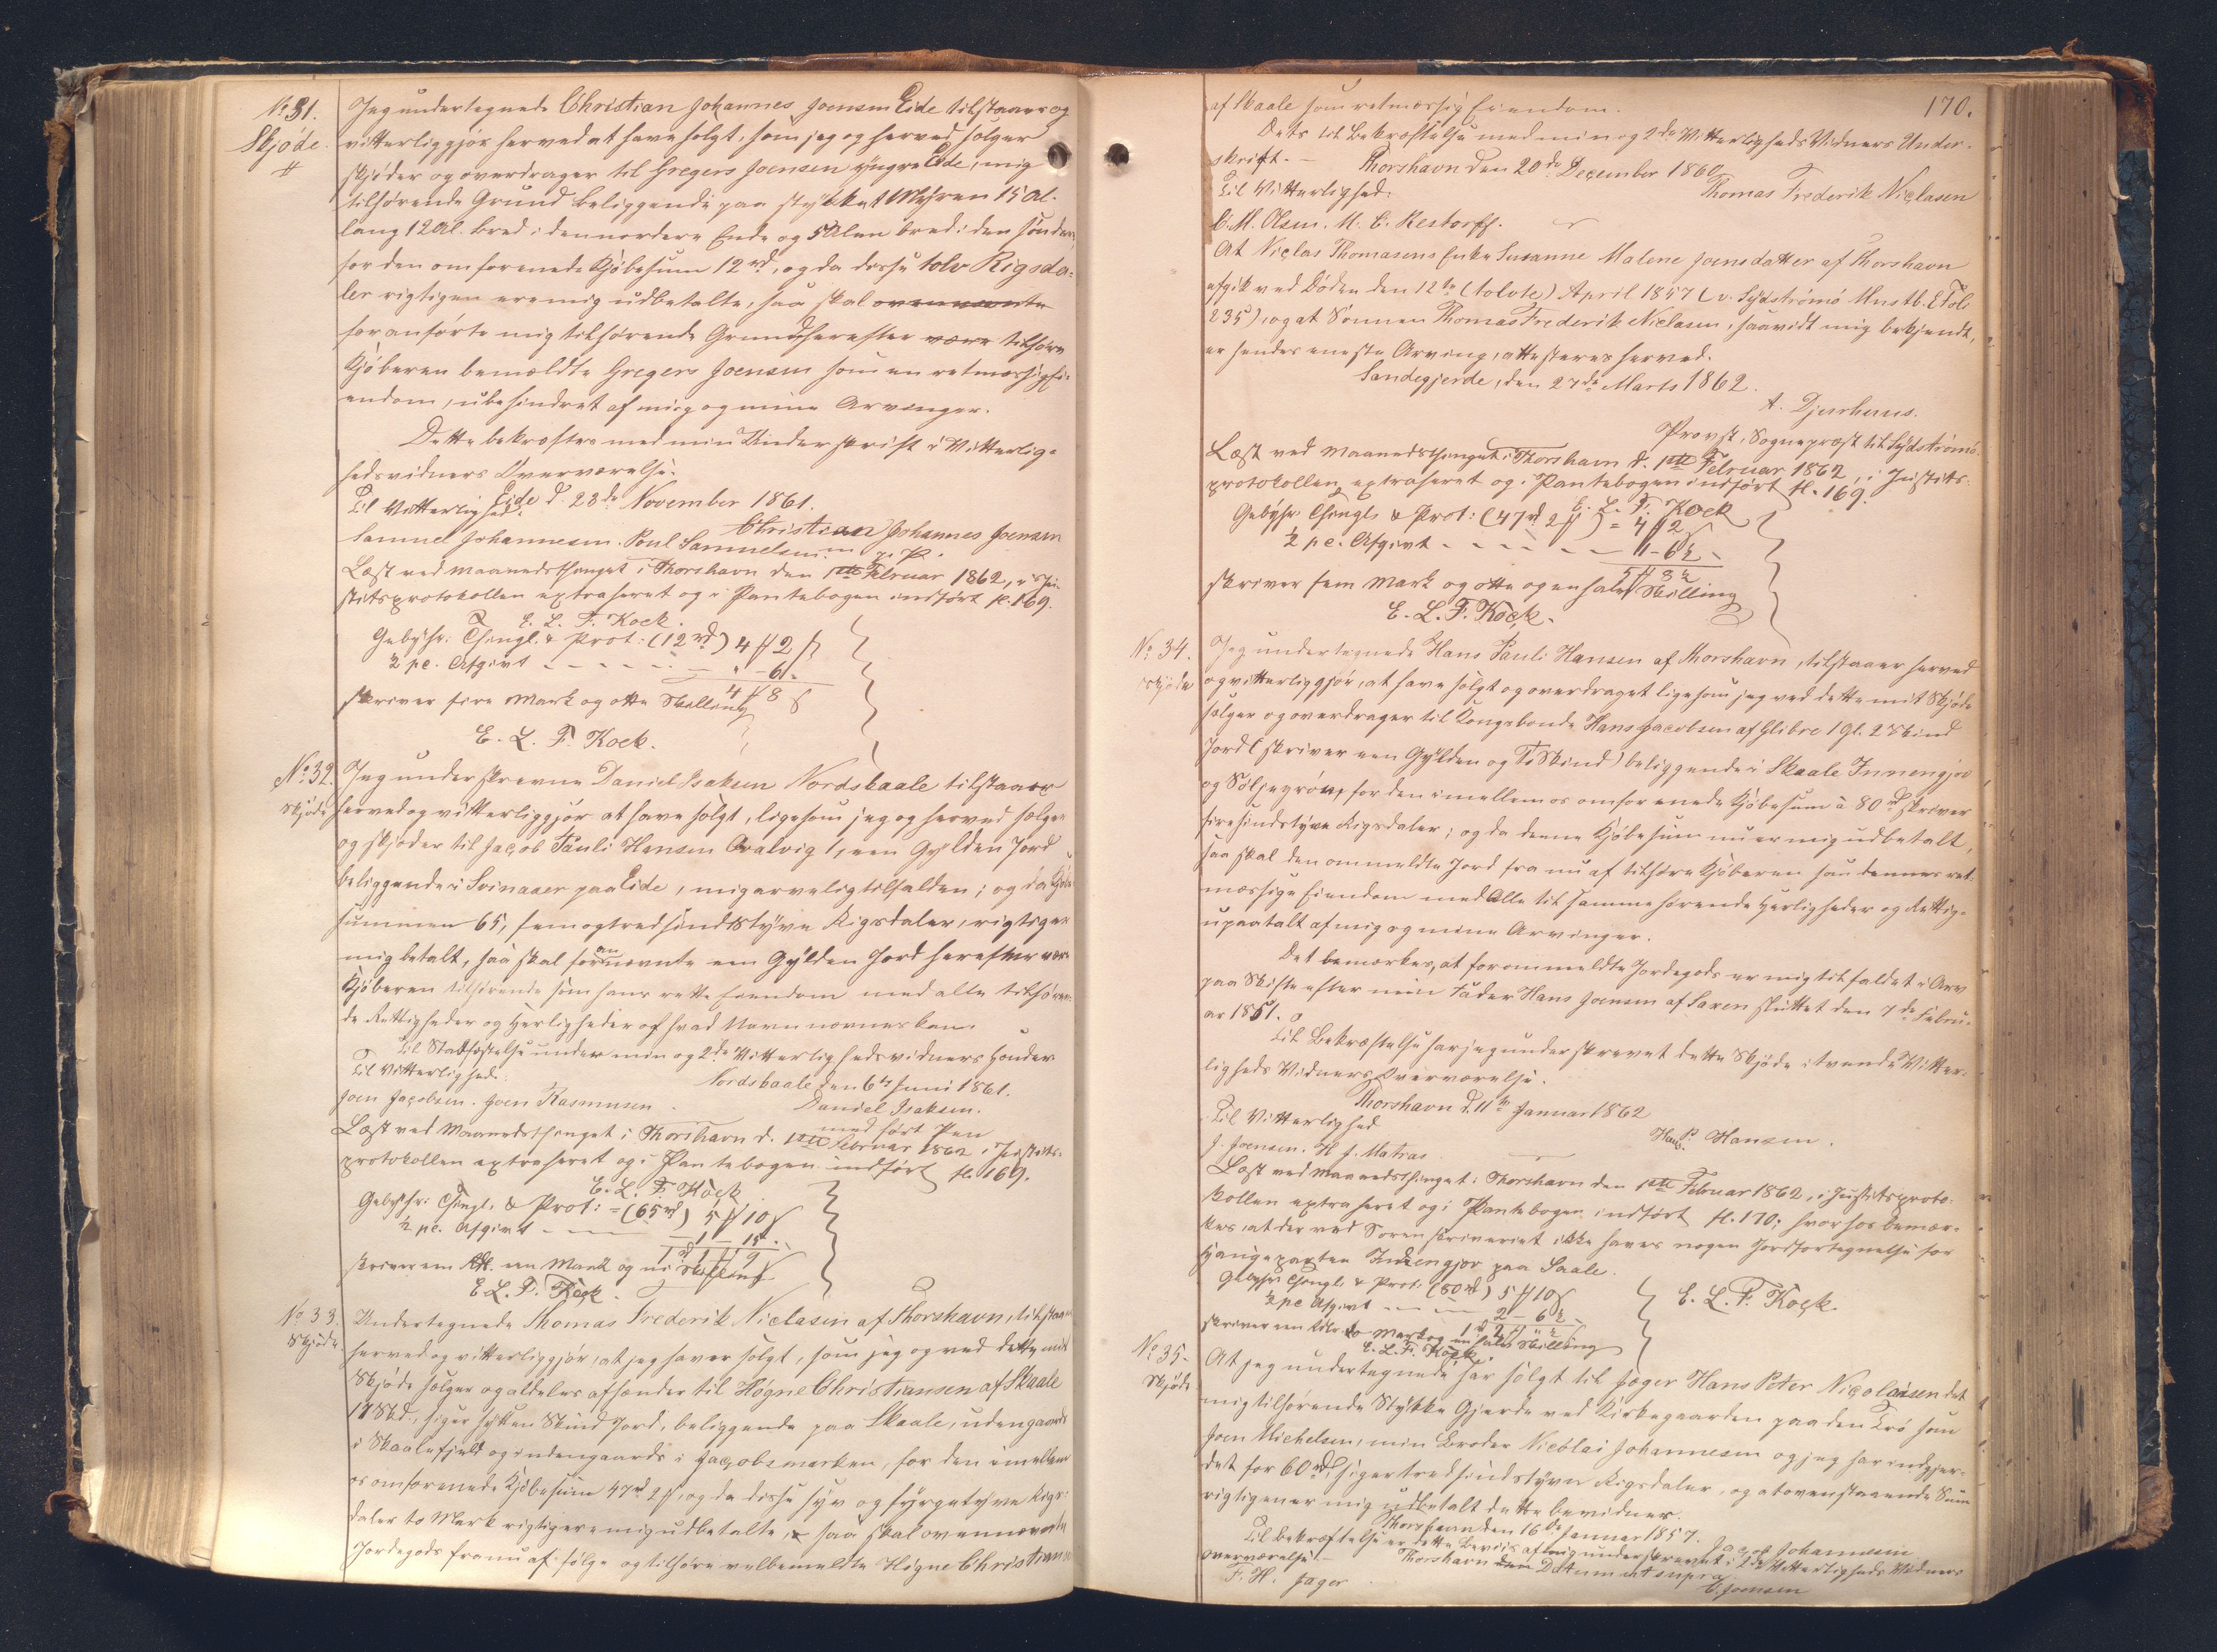 No 31.
Skjøde.
Jeg undertegnede Christian Johannes Joensen Eide tilstaaer og
vitterliggjør herved at have solgt, som jeg og herved sælger
skjøder og overdrager til Gregers Joensen yngre Eide, mig
tilhørende Grund beliggende paa stykket Myren 15 Al.
lang 12 Al. bred i den nordere Ende og 5 Alen bred i den søndre,
for den omforenede Kjøbesum 12 rd, og da disse tolv Rigsda-
ler rigtigen ere mig udbetalte, saa skal ovennævnte
foranførte mig tilhørende Grund herefter være tilhøre
Kjøberen bemældte Gregers Joensen som en retmæssig Ei-
endom, ubehindret af mig og mine Arvinger.
Dette bekræftes med min Underskrift i Vitterlig-
hedsvidners Overværelse.
Eide d. 28de November 1861.
Til Vitterlighed:
Christian Johannes Joensen
Samuel Johannesen. Poul Samuelsen m. p. P.
Læst ved Maanedsthinget i Thorshavn den 1ste Februar 1862, i Ju-
stitsprotokollen extraheret og i Pantebogen indført fl. 169.
E. L. F. Kock.
Gebyhr: Thingl. & Prot: (12 rd) 4 # 2 ß
½ pc. Afgivt - - - - - 6 "
4 # 8 ß
skriver fire Mark og otte Skilling
E. L. F. Kock.
No 32.
Skjøde
Jeg underskrevne Daniel Isaksen Nordskaale tilstaaer
herved og vitterliggjør at have solgt, ligesom jeg og herved sælger
og skjøder til Jacob Pauli Hansen Qvalvig 1, een Gylden Jord
beliggende i Svinaaer paa Eide, mig arveligtilfalden; og da Kjøbe
summen 65, femogtredsindstyve Rigsdaler, rigtigen
mig betalt, saa skal fornævnte een Gylden Jord herefter være
Kjøberen tilhørende som hans rette Eiendom med alle tilhøren-
de Rettigheder og Herligheder af hvad Navn nævnes kan.
Til Stadfæstelse under min og 2de Vitterlighedsvidners Hænder
Nordskaale den 6te Juni 1861.
Til Vitterlighed:
Daniel Isaksen.
med ført Pen
Joen Jacobsen. Joen Rasmusen.
Læst ved Maanedsthinget i Thorshavn d. 1ste Februar 1862 i Justits-
protokollen extraheret og i Pantebogen indført fl. 169.
E. L. F. Kock
Gebyhr: Thingl. & Prot: (65 rd) 5 # 10 ß
½ pc. Afgivt - - 1 - 15 "
1 rd 1 # 9 ß
skriver een Rdl. een Mark og ni Skilling
E. L. F. Kock.
No 33.
Skjøde
Undertegnede Thomas Frederik Niclasen af Thorshavn, tilstaaer
herved og vitterliggjør, at jeg haver solgt, som jeg og ved dette mit
Skjøde sælger og aldeles afhænder til Høgne Christiansen af Skaale
17 Skd., siger sytten Skind Jord, beliggende paa Skaale, udengaards
i Skaalefjeld og indengaards i Jacobsmarken, for den imellem
os omforenede Kjøbesum 47 rd 2 #, og da disse syv og fyrgetyve Rigs-
daler to Mark rigtigen ere mig udbetalte, saa skal ovennævnte
Jordegods fra nu af følge og tilhøre velbemeldte Høgne Christiansen
170.
af Skaale som retmæssig Eiendom.
Dets til Bekræftelse med min og 2de Vitterligheds Vidners Under-
skrift.
Thorshavn den 20de December 1860.
Thomas Frederik Niclasen
Til Vitterlighed:
C. M. Olsen. M. C. Restorff.
At Niclas Thomasens Enke Susanne Malene Joensdatter af Thorshavn
afgik ved Døden den 12te (tolvte) April 1857 (v. Sydstrømø Mnstb. E Fol.
235), og at Sønnen Thomas Frederik Niclasen, saavidt mig bekjendt,
er hendes eneste Arving, attesteres herved.
Sandegjerde, den 27de Marts 1862.
A. Djurhuus.
Provst, Sognepræst til Sydstrømø.
Læst ved Maanedsthinget i Thorshavn d. 1ste Februar 1862, i Justits-
protokollen extraheret og i Pantebogen indført fl. 169.
E. L. F. Kock
Gebyhr: Thingl. & Prot: (47 rd 2 #) = 4 # 2 ß
½ pc. Afgivt - - - - - 1 - 6½ -
5 # 8½
skriver fem Mark og otte og en halv Skilling
E. L. F. Kock.
No 34.
Skjøde
Jeg undertegnede Hans Pauli Hansen af Thorshavn, tilstaaer herved
og vitterliggjør, at have solgt og overdraget ligesom jeg ved dette mit Skjøde
sælger og overdrager til Kongsbonde Hans Jacobsen af Glibre 1 Gl. 2 Skind
Jord (skriver een Gylden og To Skind) beliggende i Skaale Innengjor
og for den imellem os omforenede Kjøbesum à 80 rd skriver
firesindstyve Rigsdaler; og da denne Kjøbesum nu er mig udbetalt,
saa skal den ommeldte Jord fra nu af tilhøre Kjøberen som dennes ret-
mæssige Eiendom med Alle til samme hørende Herligheder og Rettig-
upaatalt af mig og mine Arvinger.
Det bemærkes, at forommeldte Jordegods er mig tilfaldet i Arv
paa Skifte efter min Fader Hans Joensen af Saxen sluttet den 7de Febru-
ar 1851.
Til Bekræftelse har jeg underskrevet dette Skjøde i tvende Vitter-
ligheds Vidners Overværelse.
Thorshavn d. 11te Januar 1862
Hans P. Hansen.
Til Vitterlighed
J. Joensen. H. J. Matras
Læst ved Maanedsthinget i Thorshavn den 1ste Februar 1862, i Justitsproto-
kollen extraheret og i Pantebogen indført fl. 170; hvorhos bemær-
kes, at der ved Sorenskriveriet ikke haves nogen Jordfortegnelse for
Haugeparten Indengjor paa Saale.
E. L. F. Kock.
Gebyhr Thingl. & Prot: (80 rd) 5 # 10 ß
½ pc Afgivt - - - 2 - 6½
1 rd 2 # " ½ ß
skriver een Rdlr. to Mark og en halv Skilling
E. L. F. Kock.
No 35.
Skjøde
At jeg undertegnede har solgt til Jæger Hans Peter Nicolaisen det
mig tilhørende Stykke Gjerde ved Kirkegaarden paa den Trø som
Joen Michelsen, min Broder Nicolai Johannesen og jeg har indgjer-
det for 60 rd, siger tredsindstyve Rigsdaler, og at ovenstaaende Sum
rigtigen er mig udbetalt dette bevidner.
Thorshavn den 16de Januar 1857.
Jacob Johannesen
Til Bekræftelse er dette Beviis af mig underskrevet i 2de Vitterligheds Vidners
Overværelse. Thorshavn Datum ut supra
F. H. Jager
C. Joensen